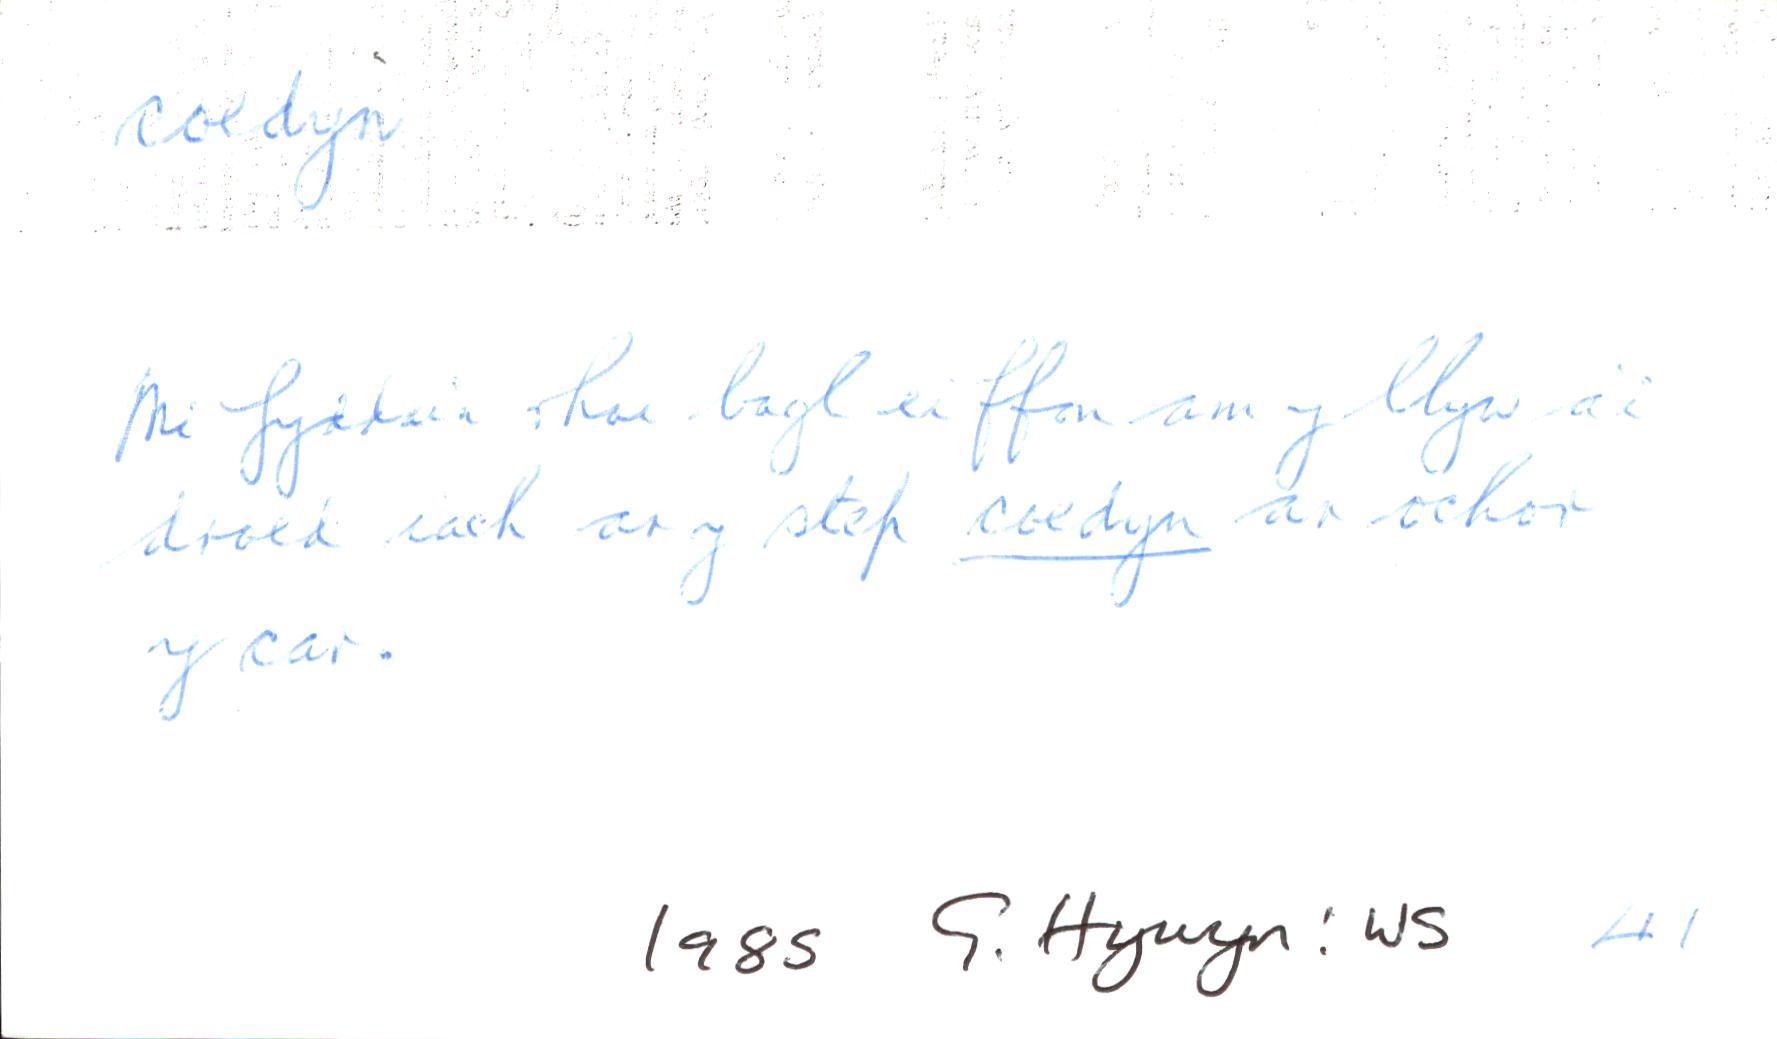 coedyn
Mi fyddai'n rhoi bagl ei ffon am y llyw a'i
droed iach ar y step coedyn ar ochor
y car.
1985 G. Hywyn: WS 41